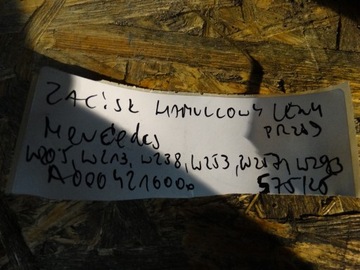 ZACISK HAMULCOWY LEWY
PRZÓD
Mercedes
W205, W213, W238, W253, W257, W293
A0004216000
575/26